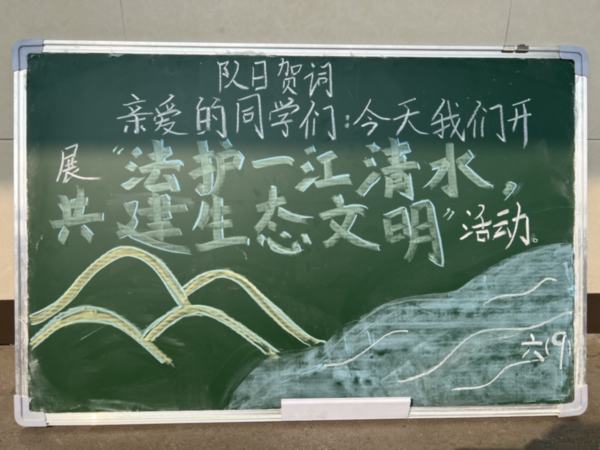 队日贺词
亲爱的同学们:今天我们开
展"法护一江清水,
共建生态文明"活动。
六(9